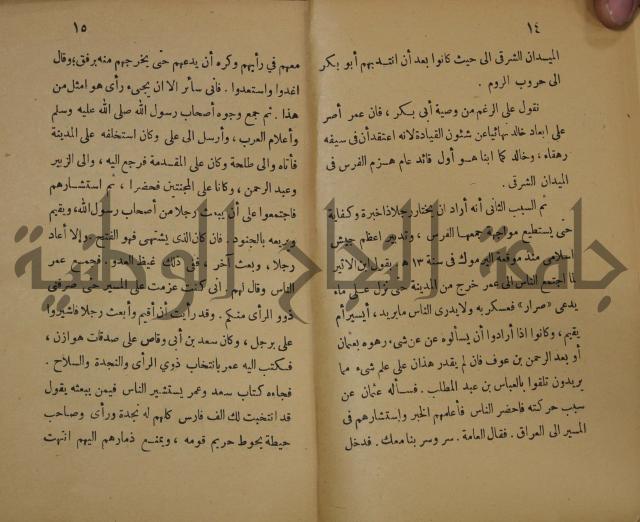 ١٤
الميدان الشرقى الى حيث كانوا بعد أن انتدبهم أبو بكر
الى حروب الروم .
نقول على الرغم من وصية أبى بكر ، فان عمر أصر
على ابعاد خالد نهائيا عن شئون القيادة لانه اعتقد أن فى سيفه
رهقاء ، وخالد كما ابنا هو أول قائد عام هزم الفرس فى
الميدان الشرقى .
ثم السبب الثانى أنه أراد ان يختار رجلا ذا خبرة وكفاية
حتى يستطيع مواجهة جمعها الفرس ، وتدبير اعظم جيش
اسلامى منذ موقعة اليرموك فى سنة ١٣ هـ يقول ابن الاثير
لما اجتمع الناس الى عمر خرج من المدينة حتى نزل على ماء
يدعى «صرار» فعسكر به ولا يدرى الناس ما يريد ، أيسير أم
يقيم ، وكانوا اذا أرادوا أن يسألوه عن شىء رموه بعثمان
أو بعبد الرحمن بن عوف فان لم يقدر هذان على علم شىء مما
يريدون ثلثوا بالعباس بن عبد المطلب . فسأله عثمان عن
سبب حركته فاحضر الناس فأعلمهم الخبر واستشارهم فى
المسير الى العراق . فقال العامة . سر وسر بنا معك . فدخل
١٥
معهم في رأيهم وكره أن يدعهم حتى يخرجهم منه برفق ؛ وقال
اغدوا واستعدوا . فانى سائر الا ان يجىء رأى هو امثل من
هذا . ثم جمع وجوه أصحاب رسول الله صلى الله عليه وسلم
وأعلام العرب ، وأرسل الى على وكان استخلفه على المدينة
فأتاه والى طلحة وكان على المقدمة فرجع اليه ، والى الزبير
وعبد الرحمن ، وكانا على المجنبتين فحضرا ، ثم استشارهم
فاجتمعوا على أن يبعث رجلا من أصحاب رسول الله ، ويقيم
ويرميه بالجنود . فان كان الذى يشتهى فهو الفتح وإلا أعاد
رجلا ، وبعث آخر ، ففى ذلك غيظ العدو . فجمع عمر
الناس وقال لهم : أنى كنت عزمت على المسير حتى صرفنى
ذوو الرأى منكم . وقد رأيت أن أقيم وأبعث رجلا فاشيروا
على برجل ، وكان سعد بن أبى وقاص على صدقات هوازن ،
فكتب اليه عمر بانتخاب ذوي الرأى والنجدة والسلاح .
فجاءه كتاب سعد وعمر يستشير الناس فيمن يبعثه يقول
قد انتخبت لك الف فارس كلهم له نجدة ورأى وصاحب
حيطة يحوط حريم قومه ، ويمنع ذمارهم اليهم انتهت
جامعة النجاح الوطنية